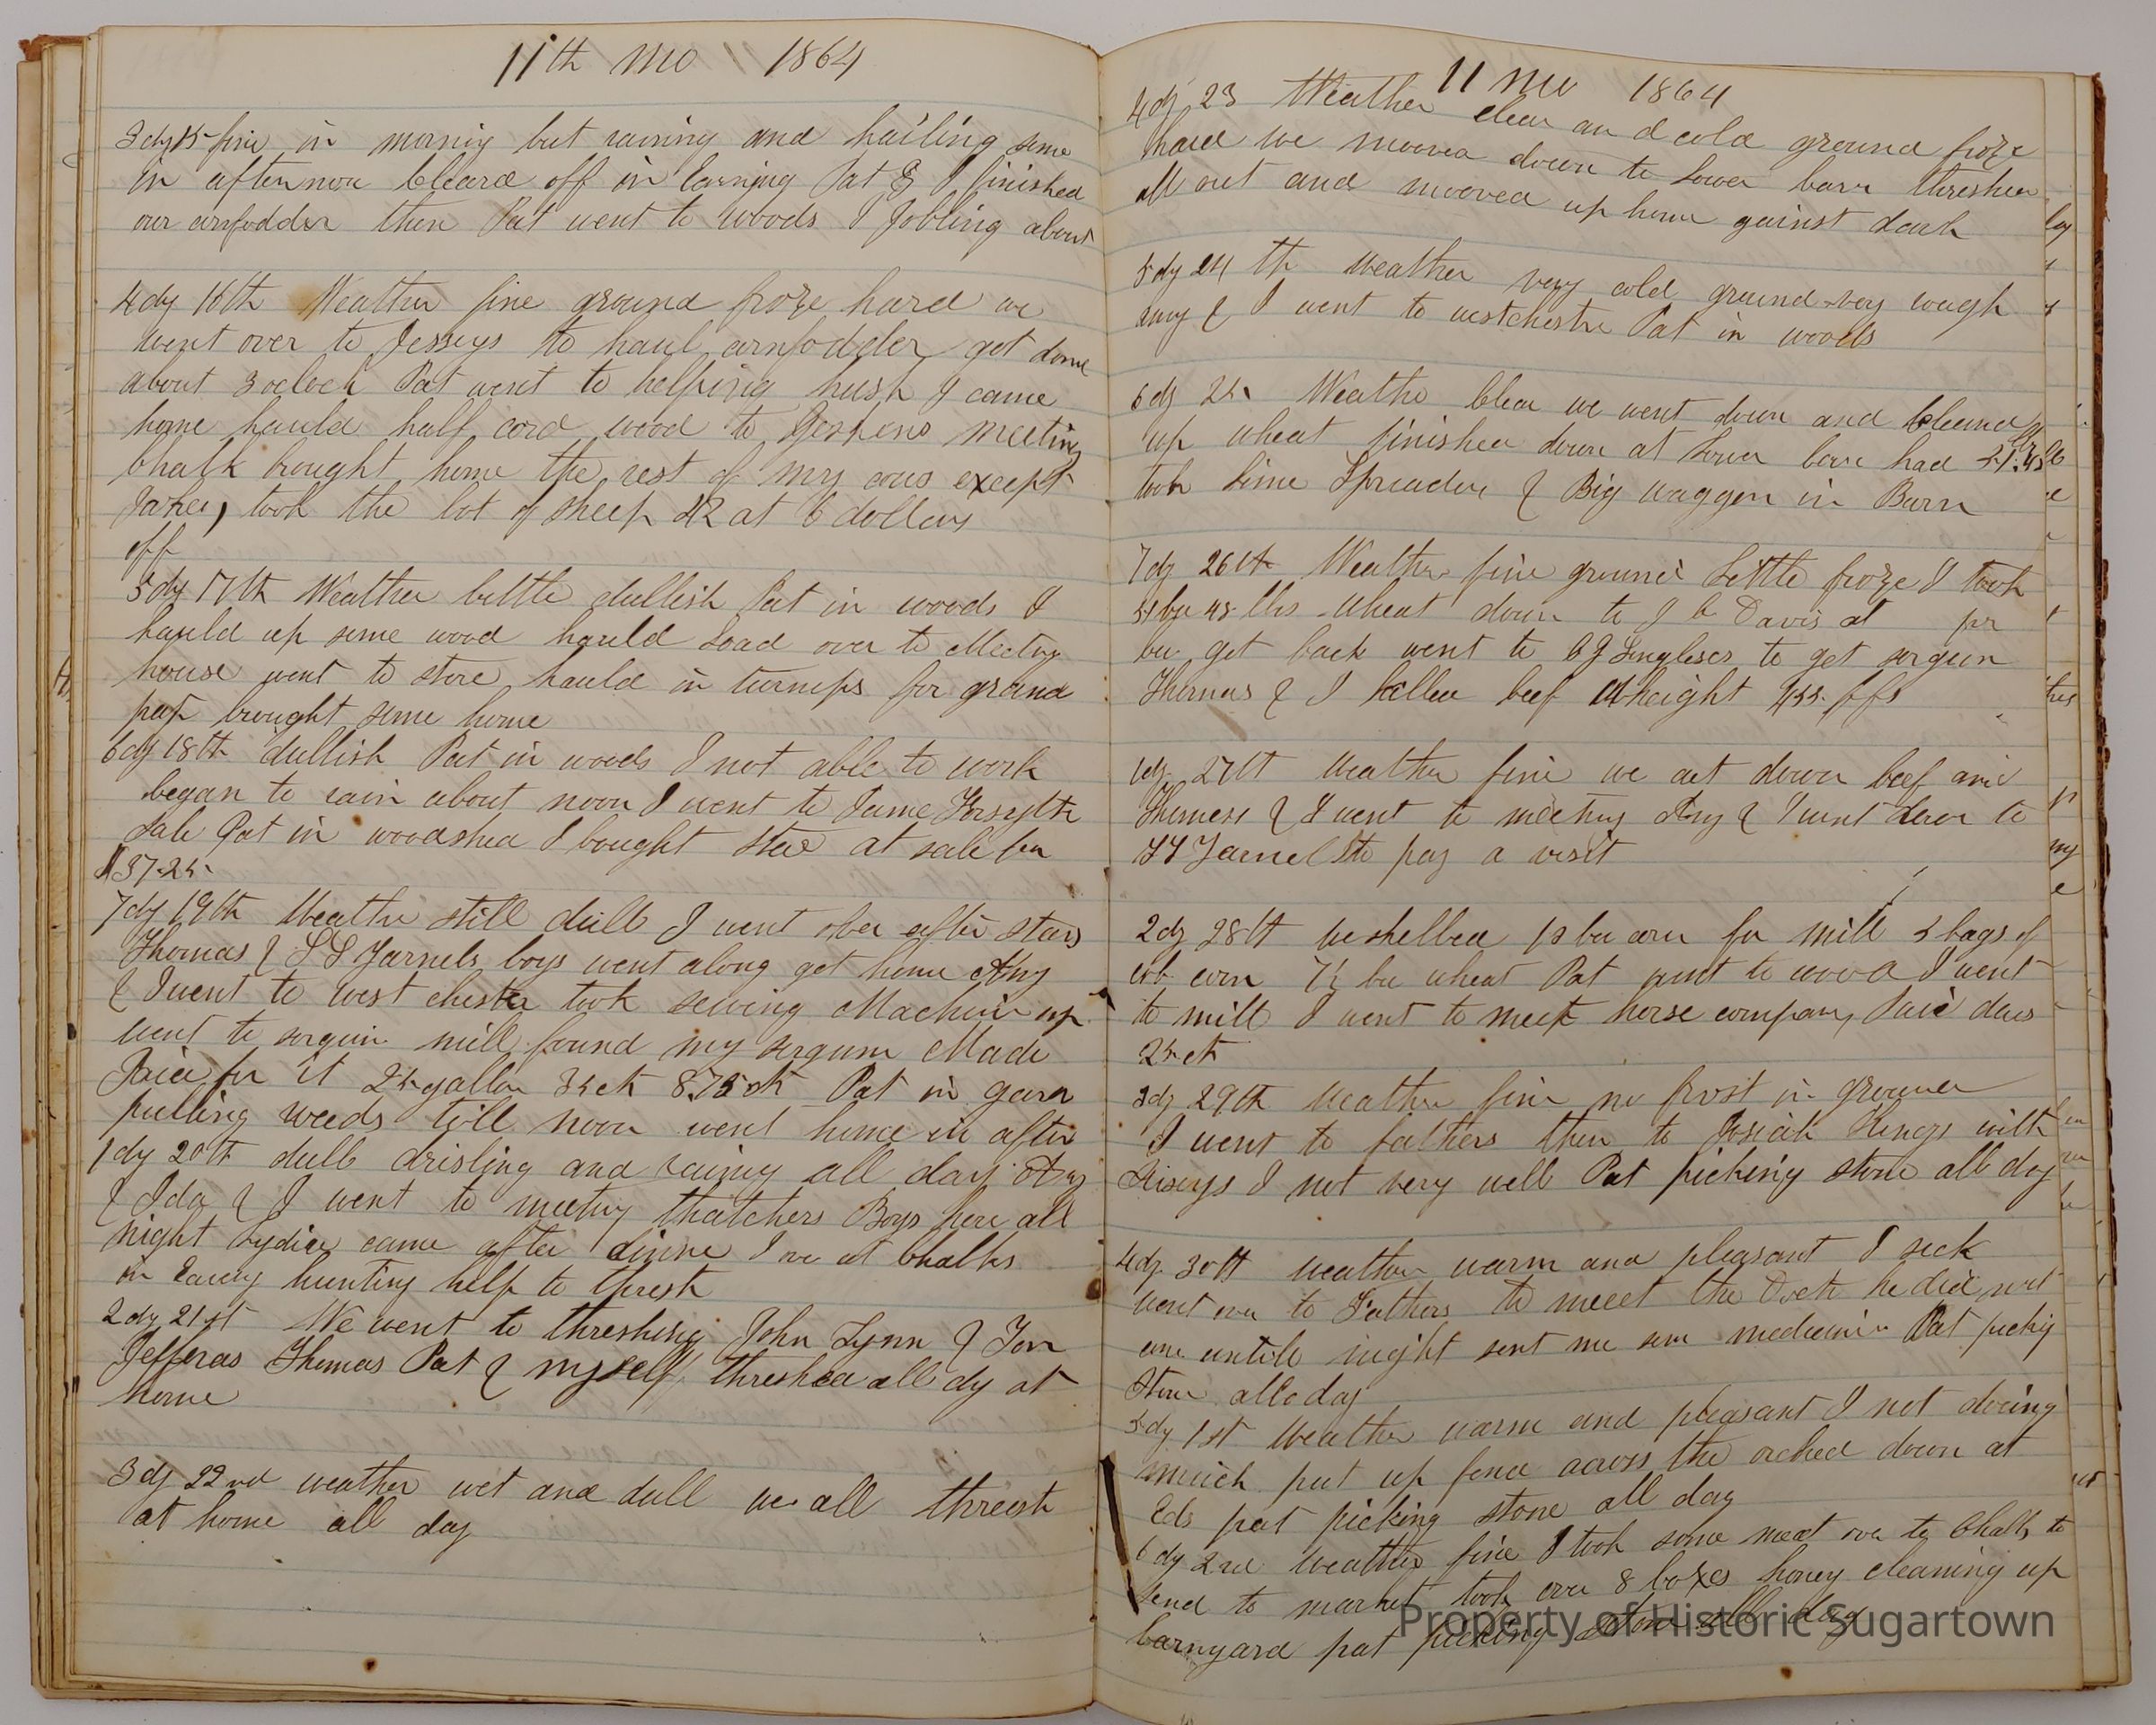 11th mo 1864
3 dy 15 fine in morning but raining and hailing some
in afternoon Cleard off in Evening Pat & I finished
our cornfodder then Pat went to woods I Jobling about
4 dy 16th Weather fine ground froze hard we
went over to Jesseys to haul cornfodder get done
about 3 oclock Pat went to helping husk I came
home hauld half cord wood to Goshens meeting
Chalk brought home the rest of my cows except
took the lot of sheep 42 at 6 dollars
off
5 dy 17th Weather little dullish Pat in woods I
hauld up some wood hauld Load over to Meeting
house went to store hauld in turnips for grand
pap brought some home
6 dy 18th dullish Pat in woods I not able to work
began to rain about noon I went to Jame Forsyth
Sale Pat in woodshed I bought at sale for
$37.25
7 dy 19th Weather still dull I went over after
Thomas & S S Yarnels boys went along got home Amy
& I went to west chester took sewing Machine up
went to sorgum mill found my sorgum Made
Price for it 25 gallon 35 ct 8.75 ct Pat in
pulling weeds till noon went home in after
1 dy 20th dull drisling and rainy all day Amy
& Ida & I went to meeting thatchers Boys here all
night Lydia came after dinne I over at Chalks
in Eaveng hunting help to thresh
2 dy 21st We went to threshing John Lynn &
Jefferas Thomas Pat & myself threshed all dy at
home
3 dy 22nd weather wet and dull we all thresh
at home all day
11 mo 1864
4 dy 23 Weather clear and cold ground froze
hard we mooved down to Lower barn threshed
all out and mooved up home gainst dark
5 dy 24th Weather very cold ground very rough
amy & I went to westchester Pat in woods
6 dy 25 Weathe Clear we went down and Cleand
up wheat finished down at Lower barn had
took Lime Spreader & Big waggon in Barn
7 dy 26th Weather fine ground Little froze I took
51 bu 45 lbs wheat down to J C Davis at pr
bu got back went to to get sorgum
Thomas & I killed beef Wheight 455
1 dy 27th Weather fine we cut down beef and
Thomess & I went to meeting Amy & I went down to
Yarnel to pay a visit
2 dy 28th we shelled 10 bu corn for mill 5 bags of
cob corn 7½ bu wheat Pat went to wood I went
to mill I went to meet horse company Paid dues
25 ct
3 dy 29th Weather fine no frost in ground
I went to fathers then to Josiah Kings with
I not very well Pat picking stone all day
4 dy 30th weather warm and pleasant I sick
went over to Fathers to meeet the Doct he did not
come untill night sent me som medicine Pat picking
Stone all day
5 dy 1st Weather warm and pleasant I not doeing
much put up fence across the orched down at
Eds pat picking stone all day
6 dy 2nd Weather fine I took some meat over to Chalks to
send to market took over 8 boxes honey cleaning up
barnyard pat picking stone all day
Property of Historic Sugartown